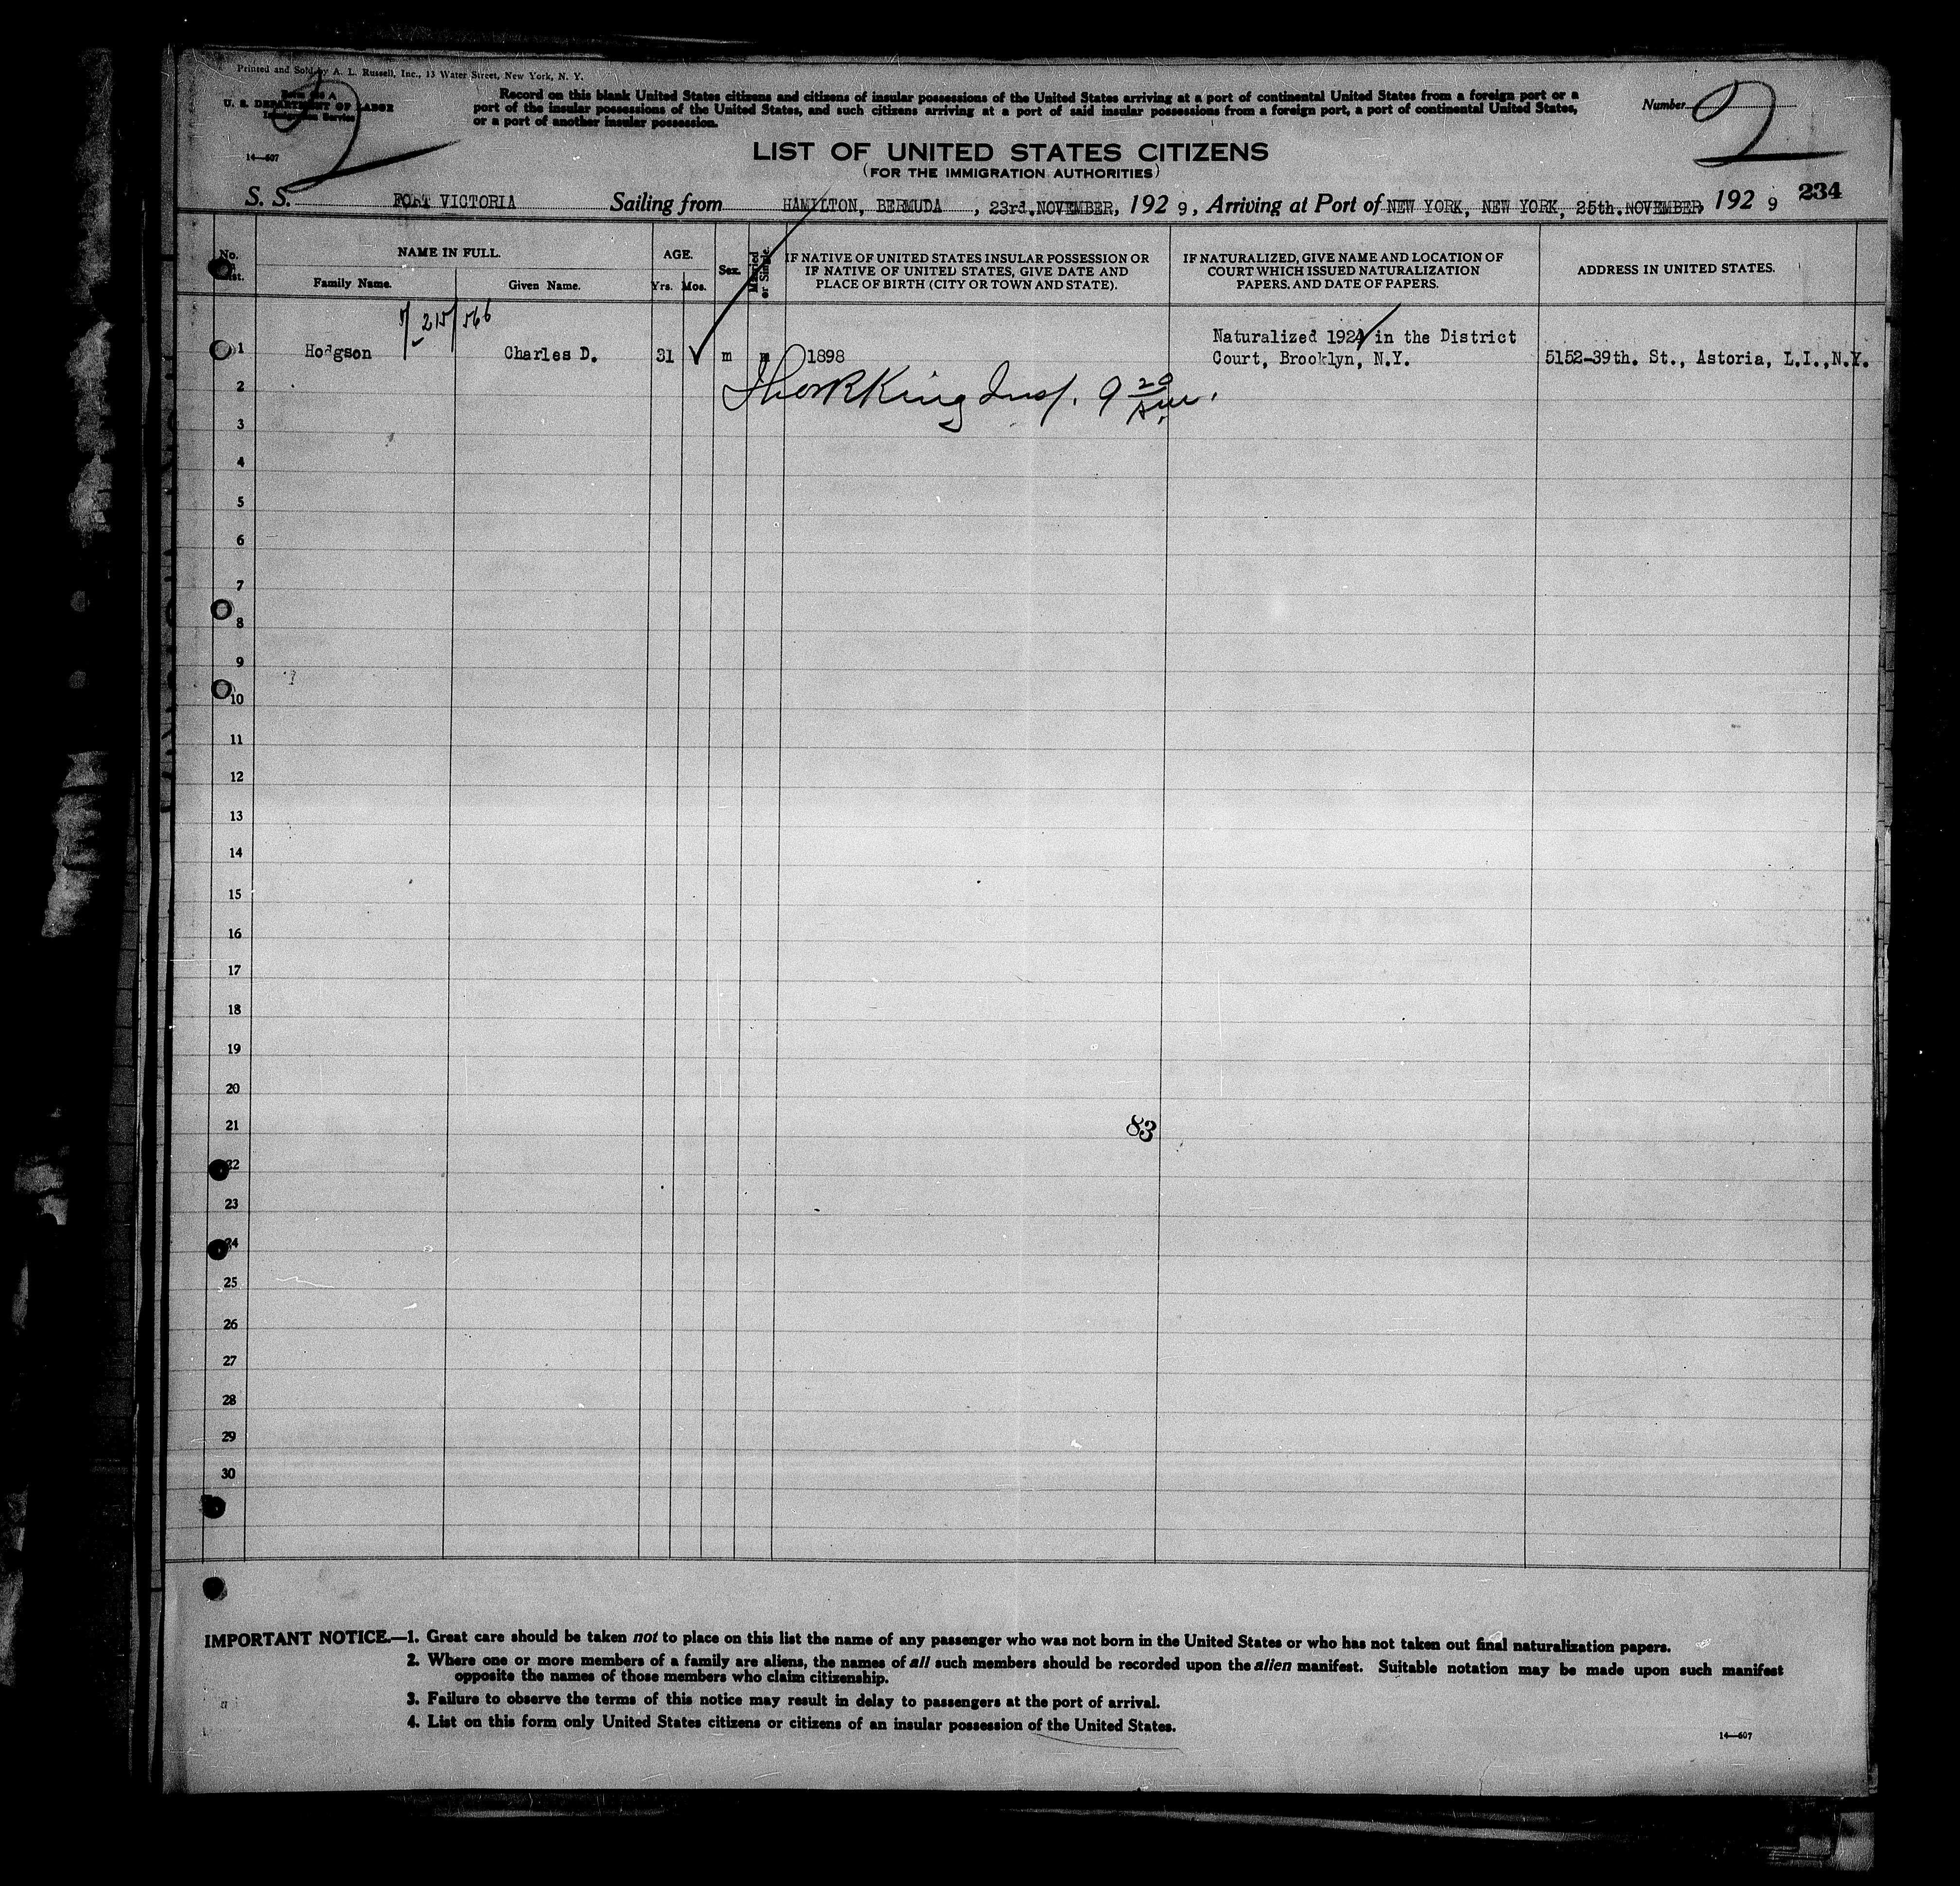 Printed and Sold by A. L. Russell, Inc., 13 Water Street, New York, N. Y.
U. S. DEPARTMENT OF LABOR
Immigration Service
14—607
2
Record on this blank United States citizens and citizens of insular possessions of the United States arriving at a port of continental United States from a foreign port or a
port of the insular possessions of the United States, and such citizens arriving at a port of said insular possessions from a foreign port, a port of continental United States,
or a port of another insular possession.
Number 2
LIST OF UNITED STATES CITIZENS
(FOR THE IMMIGRATION AUTHORITIES)
234
S. S. FORT VICTORIA Sailing from HAMILTON, BERMUDA, 23rd. NOVEMBER, 1929, Arriving at Port of NEW YORK, NEW YORK, 25th. NOVEMBER, 1929
No. List. NAME IN FULL. AGE. Sex. Married or Single. IF NATIVE OF UNITED STATES INSULAR POSSESSION OR IF NATIVE OF UNITED STATES, GIVE DATE AND PLACE OF BIRTH (CITY OR TOWN AND STATE). IF NATURALIZED, GIVE NAME AND LOCATION OF COURT WHICH ISSUED NATURALIZATION PAPERS, AND DATE OF PAPERS. ADDRESS IN UNITED STATES.
Family Name. Given Name. Yrs. Mos.
215/566
Naturalized 1924 in the District
1 Hodgson Charles D. 31 m m 1898 Court, Brooklyn, N.Y. 5152-39th. St., Astoria, L.I.,N.Y.
2 King Insp. 9 20 Am.
3
4
5
6
7
8
9
10
11
12
13
14
15
16
17
18
19
20
21 83
22
23
24
25
26
27
28
29
30
IMPORTANT NOTICE.—1. Great care should be taken not to place on this list the name of any passenger who was not born in the United States or who has not taken out final naturalization papers.
2. Where one or more members of a family are aliens, the names of all such members should be recorded upon the alien manifest. Suitable notation may be made upon such manifest
opposite the names of those members who claim citizenship.
3. Failure to observe the terms of this notice may result in delay to passengers at the port of arrival.
4. List on this form only United States citizens or citizens of an insular possession of the United States.
14—607